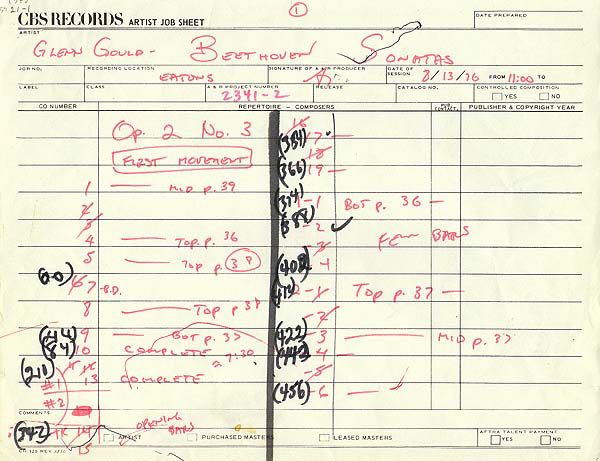 ①
CBS RECORDS ARTIST JOB SHEET
DATE PREPARED
ARTIST
GLENN GOULD - BEETHOVEN SONATAS
JOB NO. RECORDING LOCATION SIGNATURE OF A & R PRODUCER DATE OF SESSION
EATONS 8/13/76 FROM 11:00 TO
LABEL CLASS A & R PROJECT NUMBER RELEASE CATALOG NO. CONTROLLED COMPOSITION
2341-2 YES NO
CO NUMBER REPERTOIRE - COMPOSERS PUB. CONTACT. PUBLISHER & COPYRIGHT YEAR
OP. 2 No. 3
FIRST MOVEMENT
1 — MID p. 39
2
3
4 — TOP p. 36
5 — TOP p. 38
6 7 B.D.
8 — TOP p. 37
(44) 9 — BOT p. 37
(84) 10 COMPLETE
2 7:30
(211) 13 COMPLETE
#1
#2
COMMENTS
(342) 14
15
OPENING BARS
16
(354) 17 —
18
(366) 19 —
(374) 1-1 BOT p. 36 —
(388) -2 ✓ FEW BARS
3
(408) -4
2-1 TOP p. 37 —
2
(422) 3 — MID p. 37
4 —
5
(456) -6 —
ARTIST PURCHASED MASTERS LEASED MASTERS
AFTRA TALENT PAYMENT
YES NO